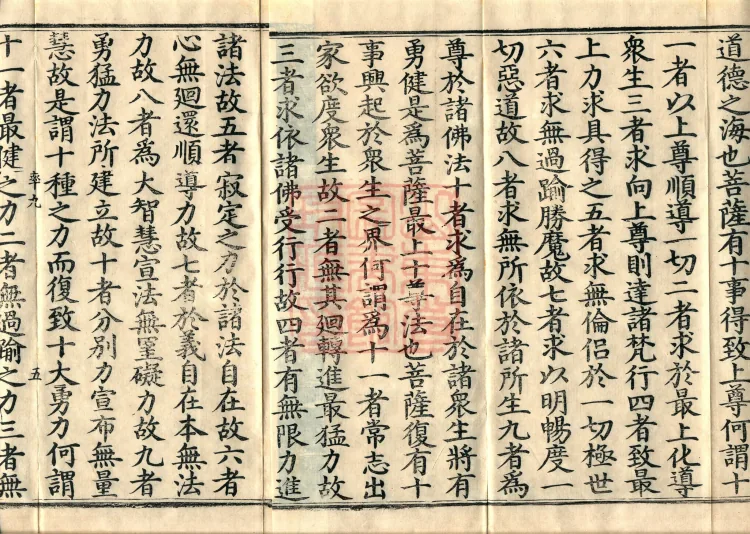 道德之海也菩薩有十事得致上尊何謂十
一者以上尊順導一切二者求於最上化導
衆生三者求向上尊則達諸梵行四者致最
上力求具得之五者求無倫侶於一切極世
六者求無過踰勝魔故七者求以明暢度一
切惡道故八者求無所依於諸所生九者為
尊於諸佛法十者求為自在於諸衆生將有
勇健是為菩薩最上十尊法也菩薩復有十
事興起於衆生之界何謂為十一者常志出
家欲度衆生故二者無其廻轉進最猛力故
三者求依諸佛受行行故四者有無限力進
諸法故五者寂定之力於諸法自在故六者
心無廻還順導力故七者於義自在本無法
力故八者為大智慧宣法無罣礙力故九者
勇猛力法所建立故十者分別力宣布無量
慧故是謂十種之力而復致十大勇力何謂
率九 五
十一者最健之力二者無過踰之力三者無